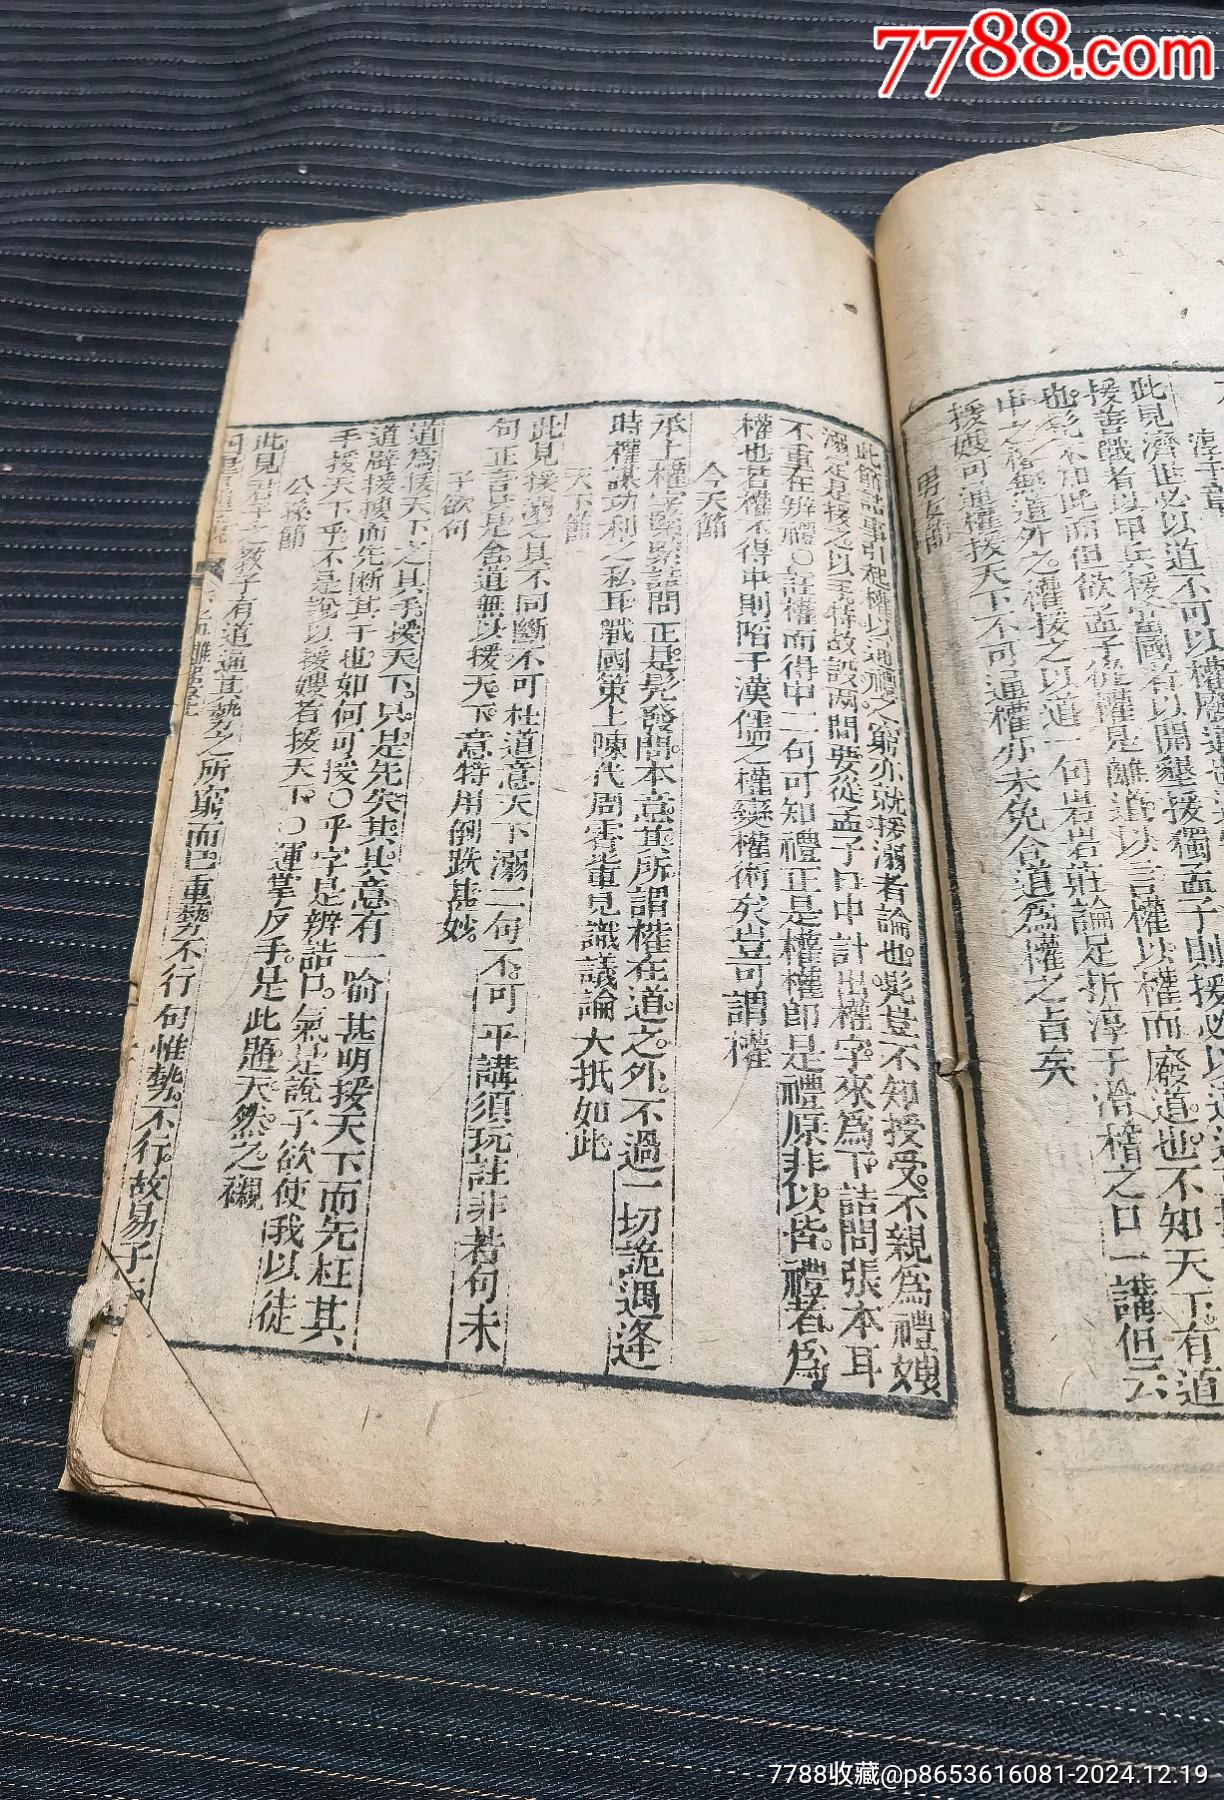 7788.com
淳于章
此見濟世必以道不可以權廢道
援善戰者以甲兵援富國者以開墾援獨孟子則援必以道
也髡不知此而但欲孟子從權是離道以言權以權而廢道也不知天下有道
中之權無道外之權援之以道一句岩岩莊論足折淳于滑稽之口一講但云
援嫂可通權援天下不可通權亦未免含道為權之旨矣
男女節
此節詰事引起權以通禮之窮亦就援溺者論也髡豈不知授受不親為禮嫂
溺是援之以手特故設兩問要從孟子口中計出權字來為下詰問張本耳
不重在辨禮○註權而得中二句可知禮正是權權即是禮原非以皆禮者為
權也若權不得中則陷于漢儒之權變權術矣豈可謂權
今天節
承上權字緊緊詰問正是髡發問本意其所謂權在道之外不過一切詭遇逢
時權謀功利之私耳戰國策上陳代周霄輩見識議論大抵如此
天下節
此見援溺之其不同斷不可枉道意天下溺二句不可平講須玩註非若句未
句正言只是舍道無以援天下意特用倒跌甚妙
子欲句
道為援天下之具手援天下只是先失其具意有一喻甚明援天下而先枉其
道譬援
手援天下乎不是說以援嫂者援天下○運掌反手是此題天然之襯
公孫節
此見君子之教子有道通其勢之所窮而已重勢不行句惟勢不行故易子
7788收藏@p8653616081-2024.12.19